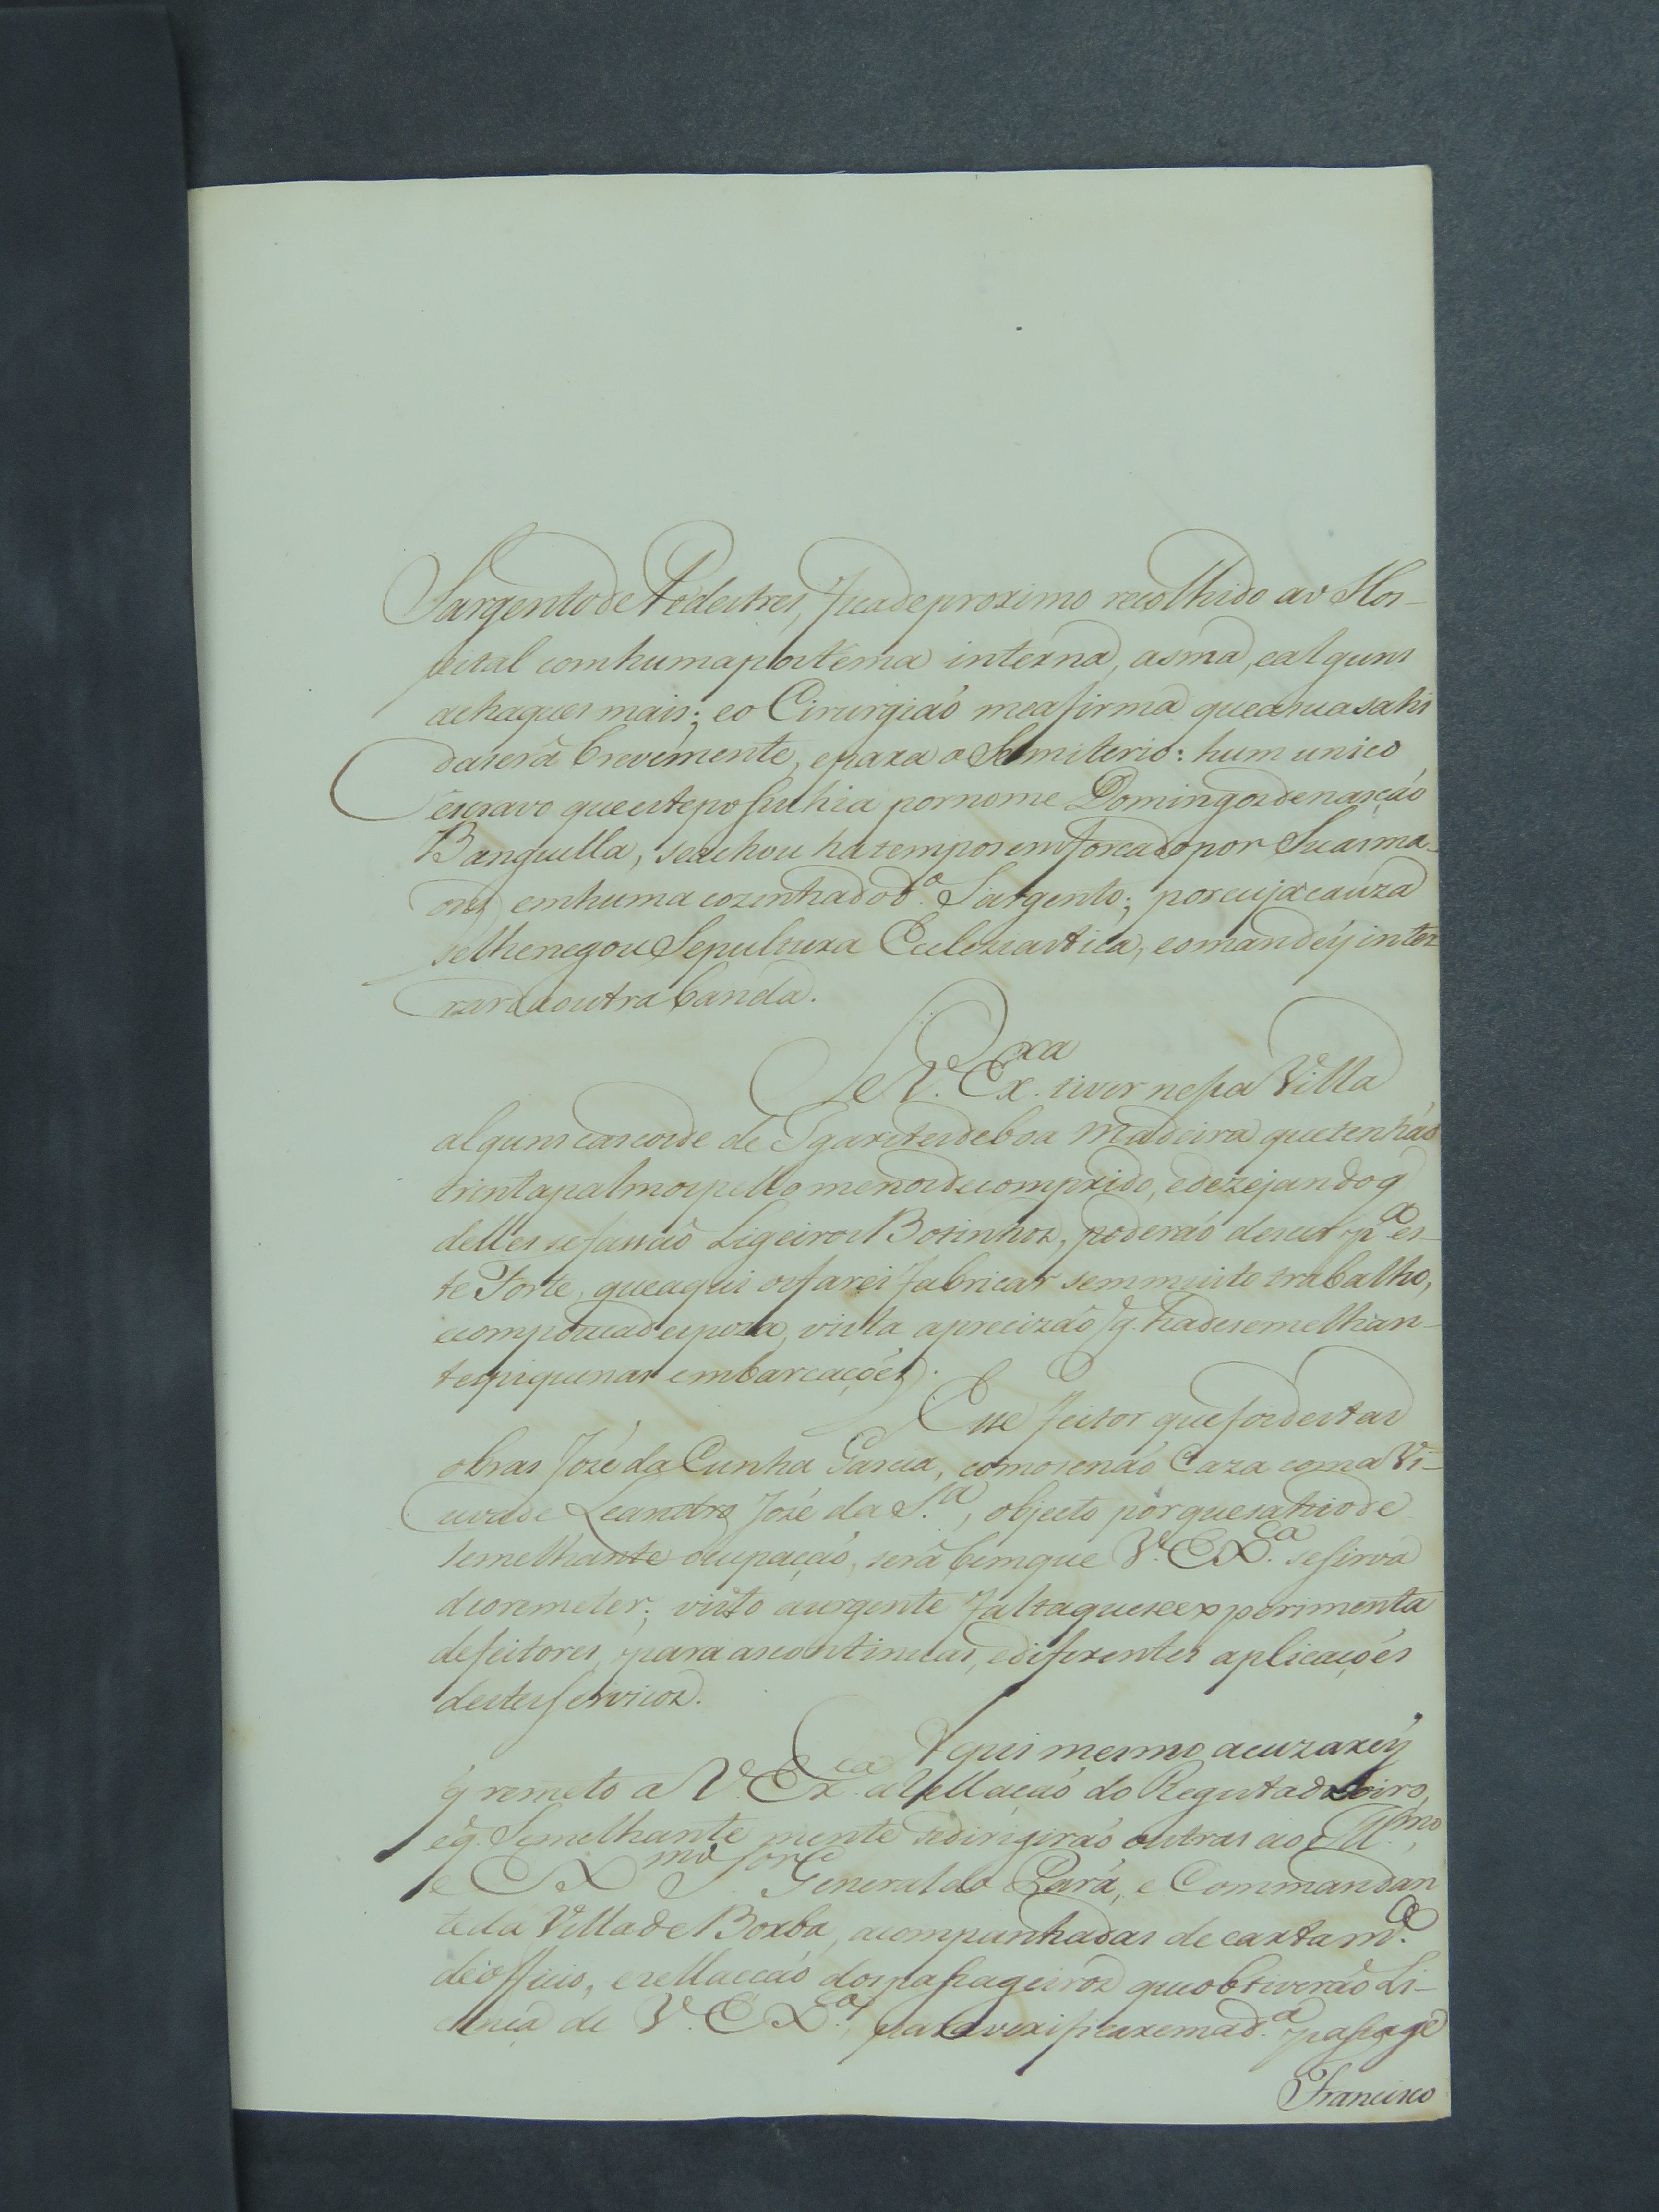 Sargento de Pédestres, fica de proximo recolhido ao Hos-
pital com huma postema interna, asma, e alguns
achaques mais; e o Cirurgiaó me afirma que a sua sahi
da será brevemente, e para o Semiterio: hum unico
escravo que este possuhia por nome Domingos de nasçáó
Banguella, se achou ha tempos emforcado por Suas ma-
ons em huma cozinha do d.º Sargento; por cuja cauza
se lhe negou Sepultura Eccleziastica, e o mandéy inter
rar da outra banda.
Se V. Ex.xa tiver nessa Villa
alguns cascos de de Igarites de boa Madeira que tenháó
trinta palmos pello menos de comprido, e dezejando q
delles se fassáó Ligeiros Botinhos, poderáó descer p.a es-
te Forte, que aqui os farei fabricar sem muito trabalho,
e com pouca despeza, vista a precizáó q. ha de semelhan-
tes piquenas embarcaçóes.
Esse feitor que foi destas
obras Jozé da Cunha Garcia, como se náó Caza com a Vi-
uva de Leandro Jozé da S.a, objecto por que sahio de
semelhante ocupaçáó, será bem que V. EX.ca se sirva
de o remeter; visto a urgente falta que se experimenta
de feitores, para as continuas, e diferentes aplicaçóes
destes serviços.
Aqui mesmo acuzaréy
q remeto a V. Ex.ca a Rellaçáó do Registado Loiro,
e q. Semelhante mente se dirigiráó outras ao Ill.mo,
e EX.mo S.or General do Pará, e Commandan
te da Villa de Borba, acompanhadas de carta m.a
de officio, e rellaccáó dos passageiros que obtiveráó Li-
cença de V. EX.ca, para verificarem a d.a passagẽ
Francisco